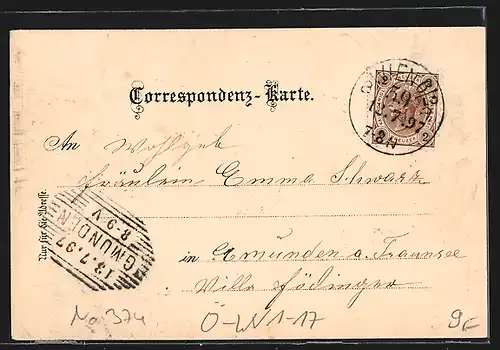 Correspondenz-Karte.
An Wohlgeb
Fräulein Emma Schwarz
in Gmunden a. Traunsee
Villa Födinger
Nur für die Adresse.
GMUNDEN
13.7.97
8-9.V
No 374
Ö-W 1-17
9€